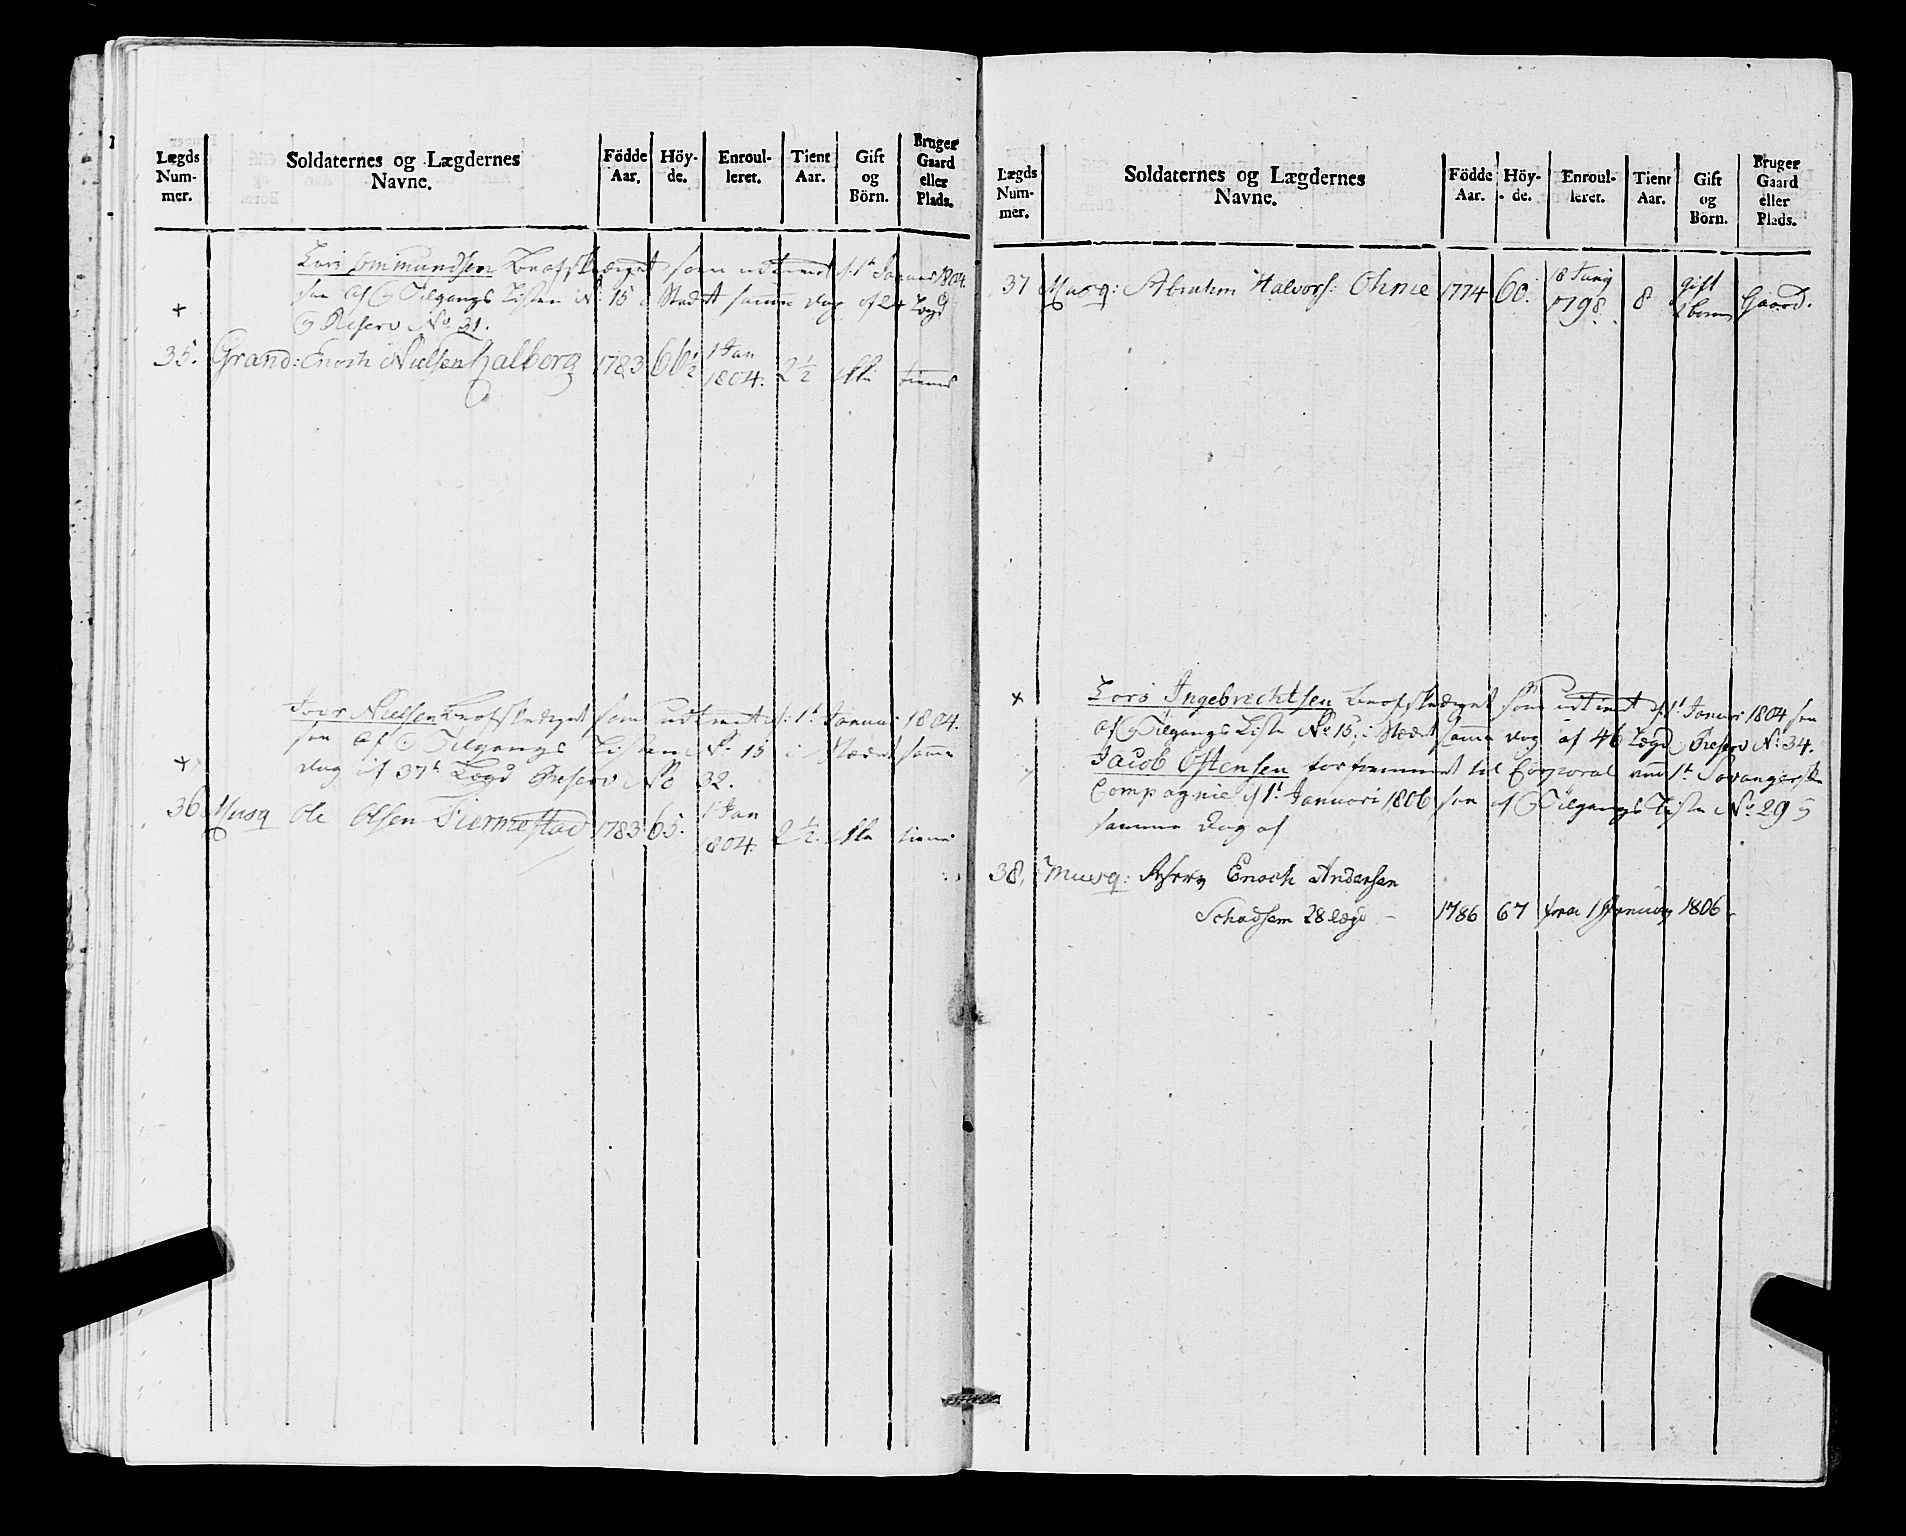 Lægds Num- mer.
Soldaternes og Lægdernes Navne.
Födde Aar.
Höy- de.
Enroul- leret.
Tient Aar.
Gift og Börn.
Bruger Gaard eller Plads.
Lars Ommundsen Beafskediget som udtient d: 1t Januar 1804.
see Afgangs Listen No 15 i Stædet samme dag af 24 Lægd
Reserv No 31.
35. Grand: Enoch Nielsen Halberg 1783 66½ 1 Jan 1804. 2½ tiener
Iver Nielsen Beafskediget som udtient d: 1t Januar 1804.
see Af Tilgangs Listen No 15 i Stædet samme
dag af 37t Lægd Reserv No 32.
36 Musq Ole Olsen Tiermestad 1783 65. 1 Jan 1804. 2½ tiener
Lægds Num- mer.
Soldaternes og Lægdernes Navne.
Födde Aar.
Höy- de.
Enroul- leret.
Tient Aar.
Gift og Börn.
Bruger Gaard eller Plads.
37 Musq: Abrahm Halvors: Ohme 1774 60. 18 Juny 1798. 8 gift Gaard.
Lars Ingebrechtsen Beafskediget som udtient d: 1t Januari 1804 see
Af Tilgangs Liste No 15, i Stædet samme dag af 46 Lægd Reserv No 34.
Jacob Ostensen forfremmet til Corporal ved 1t
Compagnie d 1t Januari 1806 see af Tilgangs Liste No 29
samme dag af
38. Musq: Enoch Andersen
28 lægd 1786 67 fra 1 January 1806